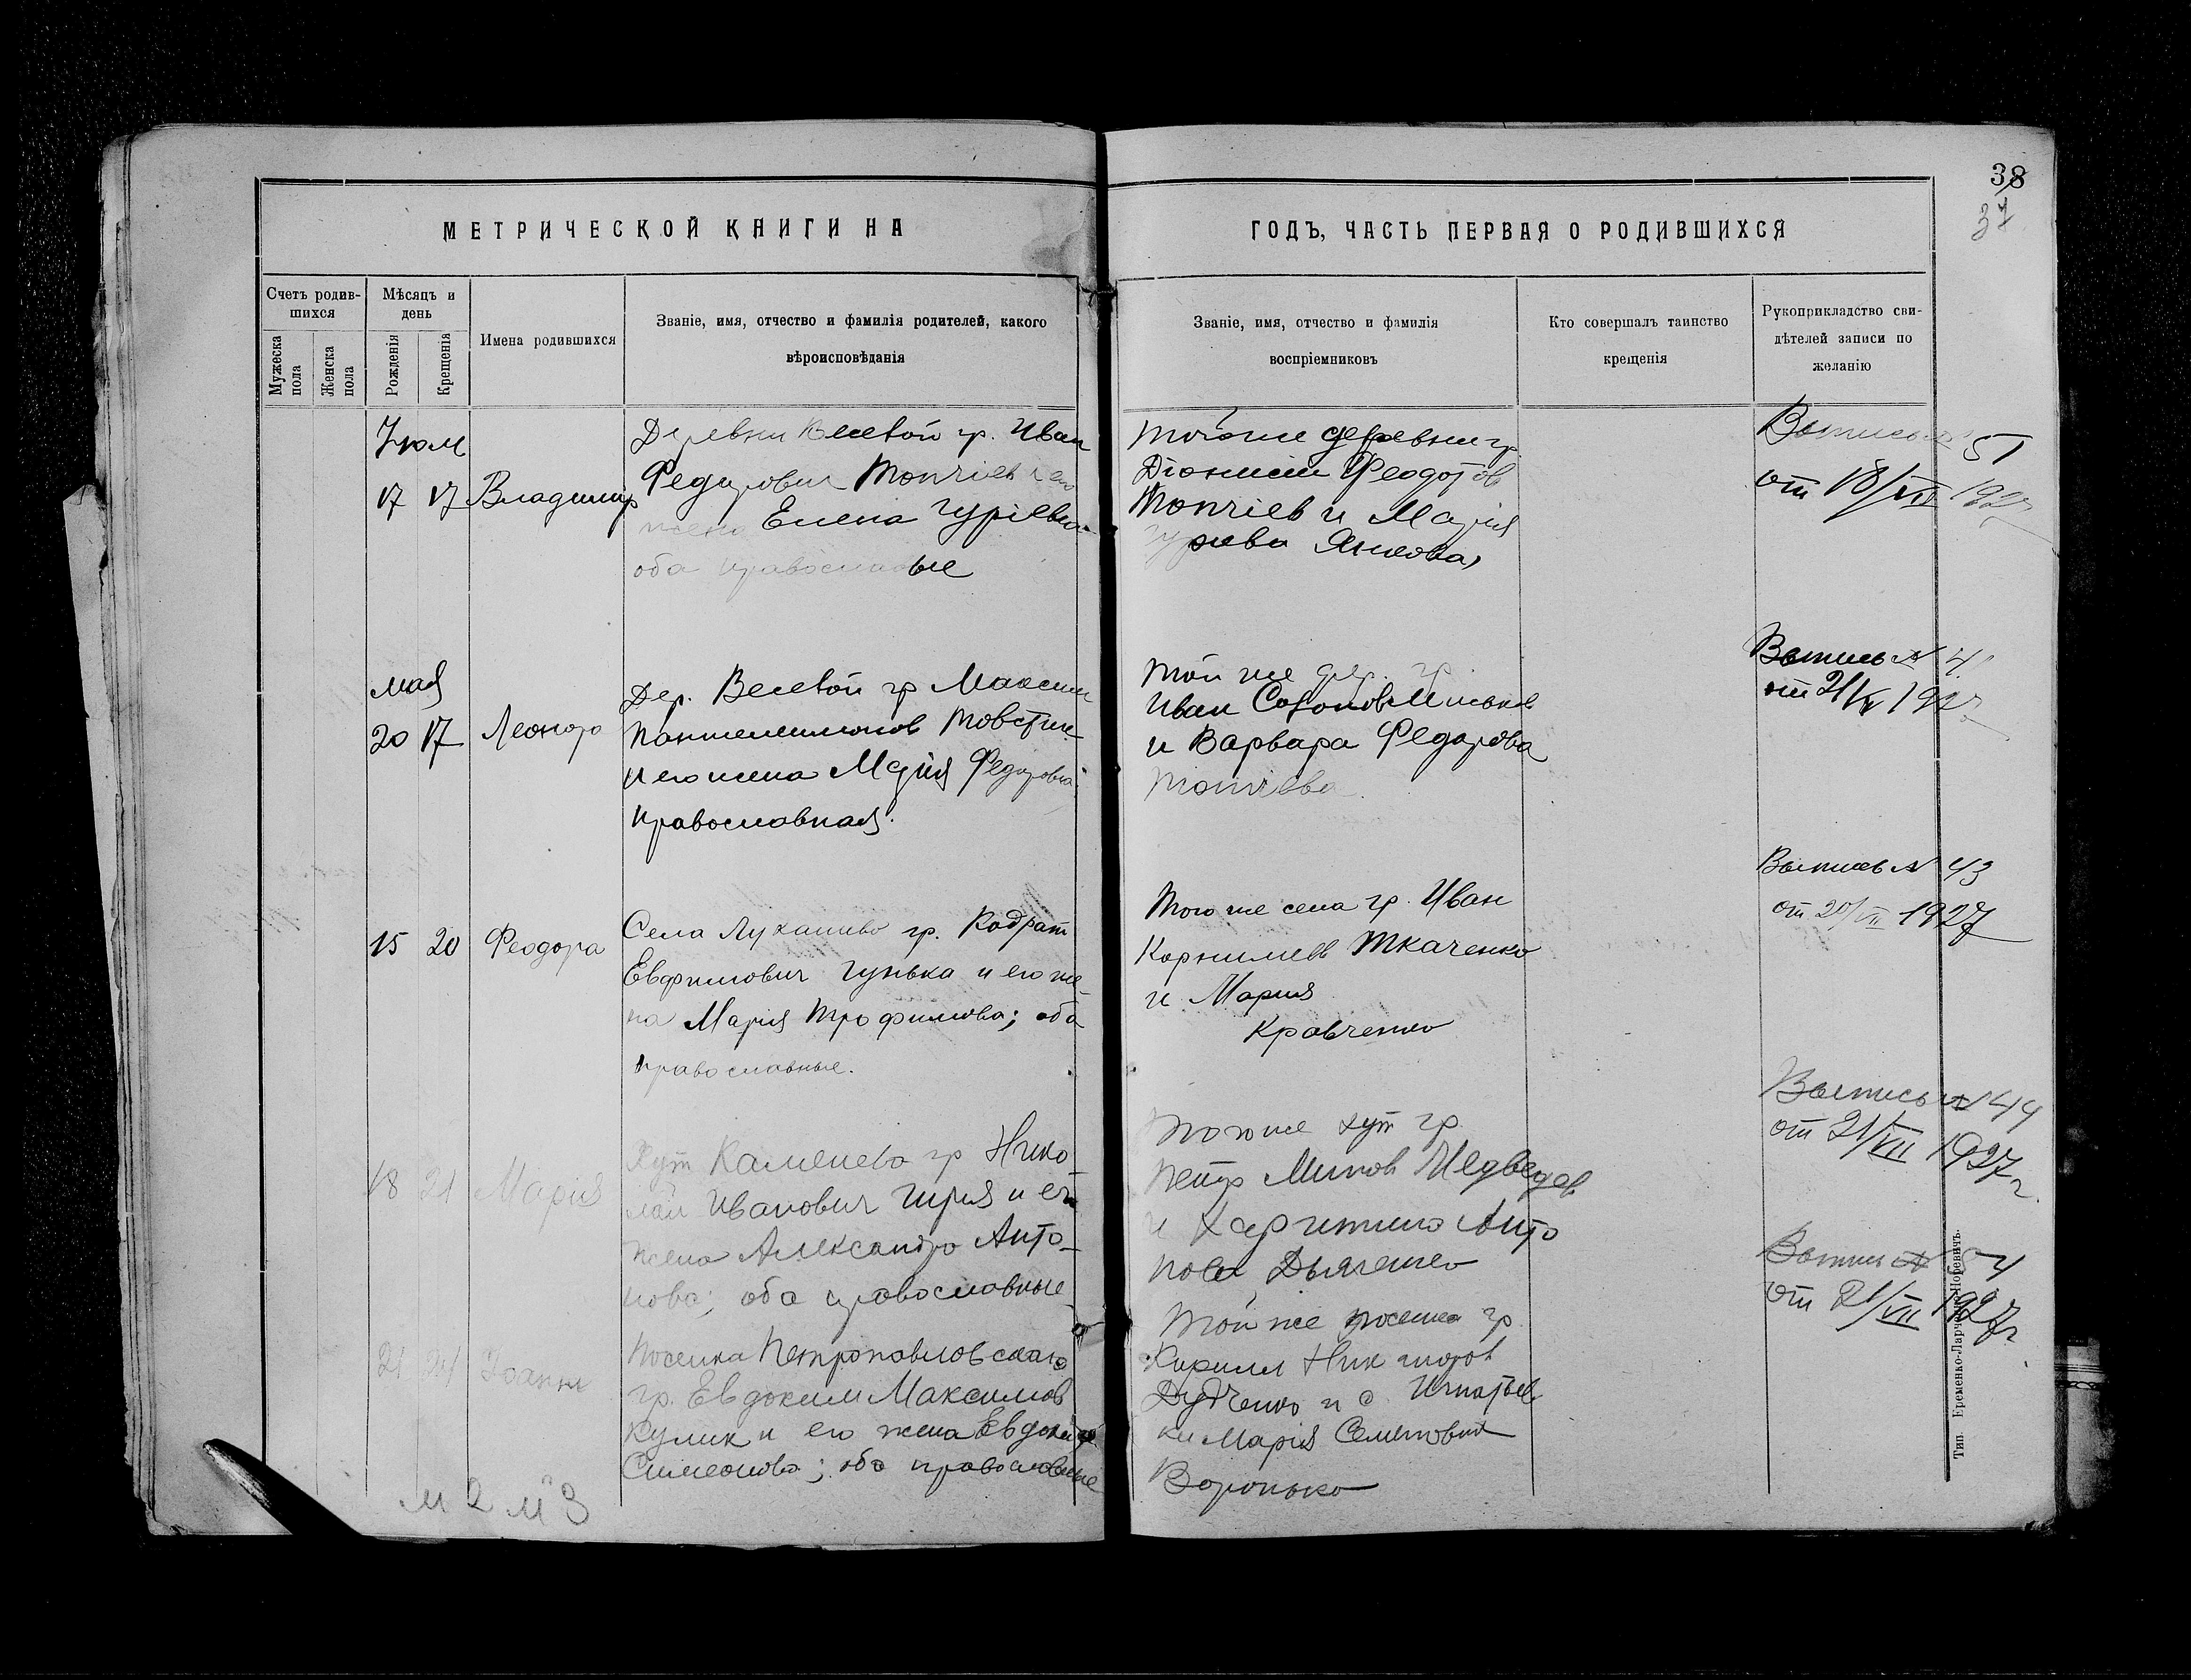 38
37
МЕТРИЧЕСКОЙ КНИГИ НА
ГОДЪ, ЧАСТЬ ПЕРВАЯ О РОДИВШИХСЯ
Счетъ родив-
шихся
Мужеска пола
Женска пола
Мѣсяцъ и
день
Рожденія
Крещенія
Имена родившихся
Званіе, имя, отчество и фамилія родителей, какого
вѣроисповѣданія
Званіе, имя, отчество и фамилія
воспріемниковъ
Кто совершалъ таинство
крещенія
Рукоприкладство сви-
дѣтелей записи по
желанію
17 17 Владимир
Деревни Веселой гр. Иван
Федорович Топчиев и его
жена Елена Гуріевна
оба православные
тойже деревни гр
Діонисий Феодотов
Топчіев и Мария
Янкова
Выпись № 51
от 18/VII 1927
мая
20 17 Леонора
Дер. Веселой гр Максим
Пантелеимонов Товстик
и его жена Мария Федоровна
православная.
Той же дер. гр.
Иван
и Варвара Федорова
Топчіева
Выпись №
от 21/V 1927
15 20 Феодора
Села Лукашево гр. Кодрат
Евфимович Гунька и его же-
на Мария Трофимова; оба
православные.
Того же села гр. Иван
Корнилиев Ткаченко
и Мария
Кравченко
Выпись № 43
от 20/VII 1927
18 21 Марія
Хут Каменево гр Нико-
лай Иванович и его
жена Александра Анто-
нова; оба православные
Того же хут гр.
Петр Минов Медведев
и Харитина Анто
нова Дьяченко
Выпись № 44
от 21/VII 1927 г.
21 24 Іоанн
Поселка Петропавловскаго
гр. Евдоким Максимов
Кулик и его жена Евдокия
Симеонова; оба православные
Той же поселка гр
Кирилл Никаноров
Дудченко и с. Игнатьев
ки Марія Семеновна
Воронько
Выпись № 54
от 21/VII 1927 г
м 2 м 3
Тип. Еременко-Ларченко Норевичъ.